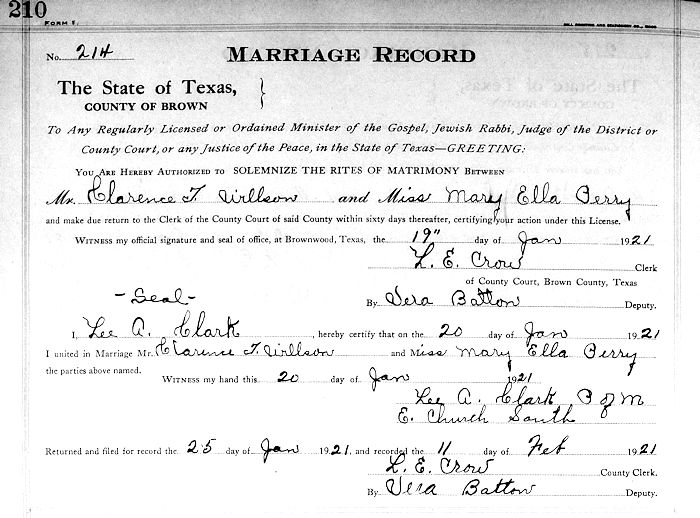 210
FORM 1.
No. 214 MARRIAGE RECORD
The State of Texas,
COUNTY OF BROWN
To Any Regularly Licensed or Ordained Minister of the Gospel, Jewish Rabbi, Judge of the District or
County Court, or any Justice of the Peace, in the State of Texas—GREETING:
YOU ARE HEREBY AUTHORIZED TO SOLEMNIZE THE RITES OF MATRIMONY BETWEEN
Mr. Clarence T. Willson and Miss Mary Ella Perry
and make due return to the Clerk of the County Court of said County within sixty days thereafter, certifying your action under this License.
WITNESS my official signature and seal of office, at Brownwood, Texas, the 19" day of Jan 1921
L. E. Crow Clerk
of County Court, Brown County, Texas
-Seal-
By Vera Batton Deputy.
I, Lee A. Clark, hereby certify that on the 20 day of Jan 1921
I united in Marriage Mr. Clarence T. Willson and Miss Mary Ella Perry
the parties above named.
WITNESS my hand this 20 day of Jan 1921
Lee A. Clark, P of M
E. Church South
Returned and filed for record the 25 day of Jan 1921, and recorded the 11 day of Feb 1921
L. E. Crow County Clerk.
By Vera Batton Deputy.